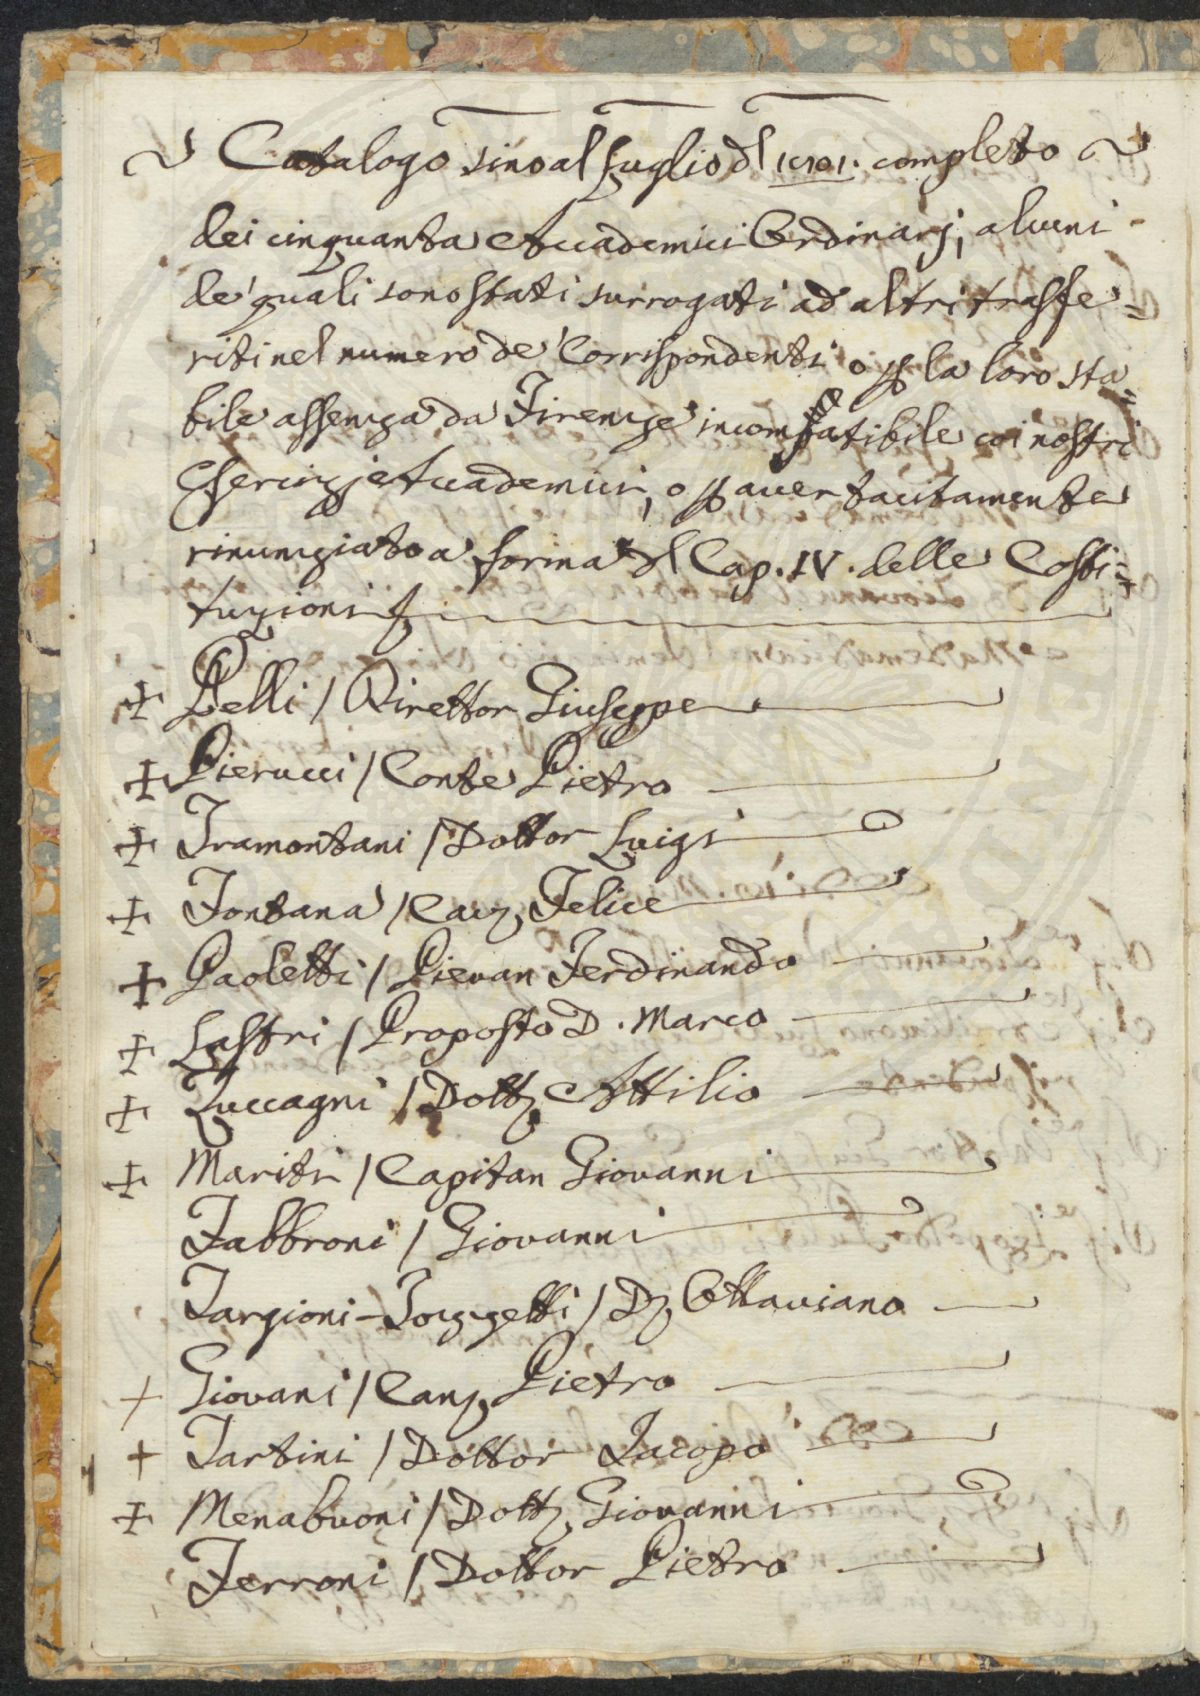 Catalogo sino al Luglio del 1801. completo
dei cinquanta Accademici Ordinarj, alcuni
de' quali sono stati surrogati ad altri trasfe=
riti nel numero de' Corrispondenti o p la loro sta=
bile assenza da Firenze incompatibile coi nostri
Esercizj Accademici, o p aver tacitamente
rinunziato a forma del Cap. IV. delle Costi=
tuzioni
✠ Pelli / Direttor Giuseppe
✠ Pierucci / Conte Pietro
✠ Tramontani / Dottor Luigi
✠ Fontana / Cav. Felice
✠ Paoletti / Pievan Ferdinando
✠ Lastri / Proposto D. Marco
✠ Zuccagni / Dott. Attilio
✠ Mariti / Capitan Giovanni
Fabbroni / Giovanni
Targioni-Tozzetti / D. Ottaviano
+ Giovani / Can. Pietro
+ Tartini / Dottor Jacopo
✠ Menabuoni / Dott. Giovanni
Ferroni / Dottor Pietro